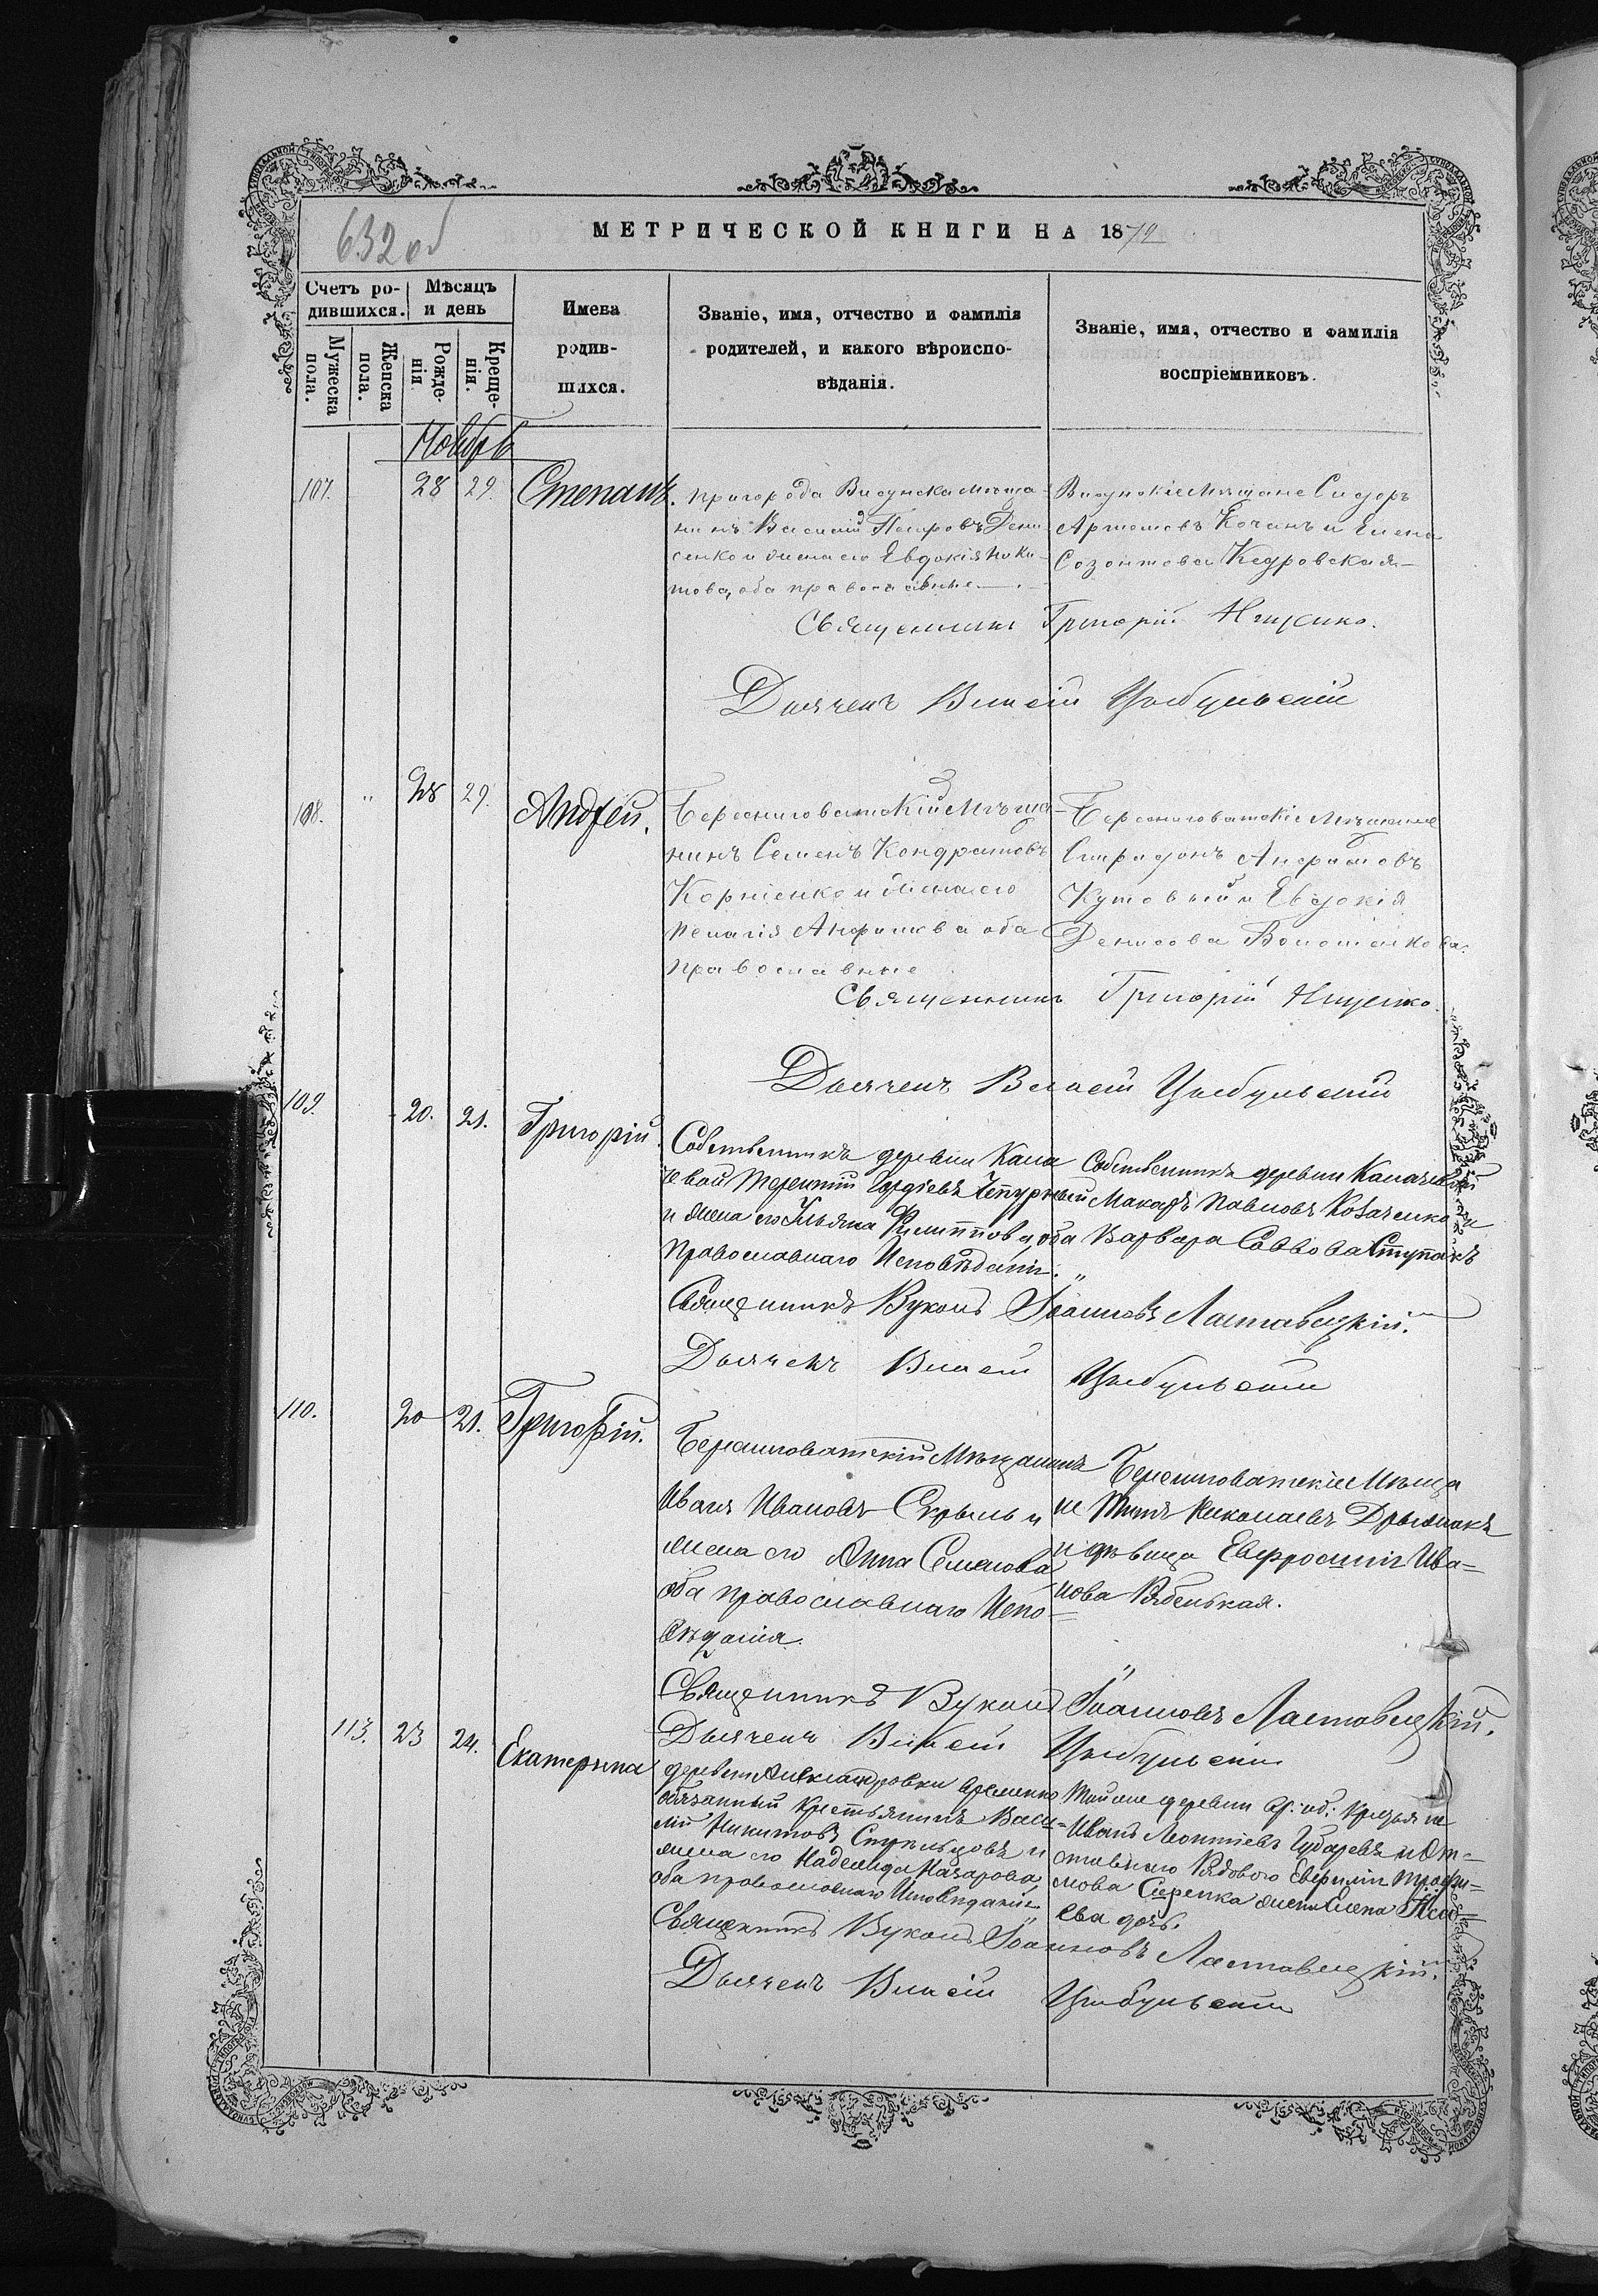 632 об
МЕТРИЧЕСКОЙ КНИГИ НА 1872
Счетъ ро-
дившихся.
Мѣсяцъ
и день
Мужеска
пола.
Женска
пола.
Рожде-
нія
Креще-
нія.
Имена
родив-
шихся.
Званіе, имя, отчество и фамилія
родителей, и какого вѣроиспо-
вѣданія.
Званіе, имя, отчество и фамилія
воспріемниковъ.
Ноябрь
107. 28 29. Степанъ.
пригорода Висунска мѣща-
нинъ Василій Петровъ Дени
сенко и жена его Евдокія Ники-
това, оба православные
Висунскіе Мѣщане Сидоръ
Артемовъ Кочанъ и Елена
Созонтова Кедровская
Священникъ Григорій Нищенко.
Дьячекъ Цыбульскій
108. " 28 29. Андрей.
Береснеговатскій Мѣща-
нинъ Семенъ Кондратовъ
Корніенко и жена его
Пелагія оба
православные
Береснеговатскіе Мѣщане
Спиридонъ
Кутовый и Евдокія
Денисова
Священникъ Григорій Нищенко.
Дьячекъ Цыбульскій
109. 20. 21. Григорій.
Собственникъ деревни Кала
чевой Терентій Гордіевъ Чепурный
и жена его Ульяна Филиппова, оба
Православнаго Исповѣданія.
Собственникъ деревни Калачевой
Макаръ Павловъ Козаченко и
Варвара Саввова Ступакъ
Священникъ Вуколъ Іоанновъ Ластавецкій.
Дьячекъ Цыбульскій
110. 20 21. Григорій.
Береснеговатскій Мѣщанинъ
Иванъ Ивановъ Скрыль и
жена его Анна Семенова
оба православнаго Испо-
вѣданія.
Береснеговатскіе Мѣща
не Титъ Николаевъ
и дѣвица Евфросинія Ива-
нова Рябенькая.
Священникъ Вуколъ Іоанновъ Ластавецкій.
Дьячекъ Цыбульскій
113. 23 24. Екатерина
деревни Александровки временно
обязанный крестьянинъ Васи-
лій Никитовъ Стрельцовъ и
жена его Надежда Назарова,
оба православнаго Исповѣданія
Той же деревни
Иванъ Леонтіевъ Губаревъ и От-
ставнаго Рядового Трофи-
мова жены Елена
ева дочь.
Священникъ Вуколъ Іоанновъ Ластавецкій.
Дьячекъ Цыбульскій